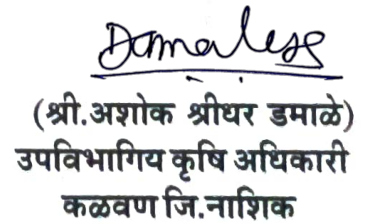 Damaless
(श्री.अशोक श्रीधर डमाळे)
उपविभागिय कृषि अधिकारी
कळवण जि.नाशिक